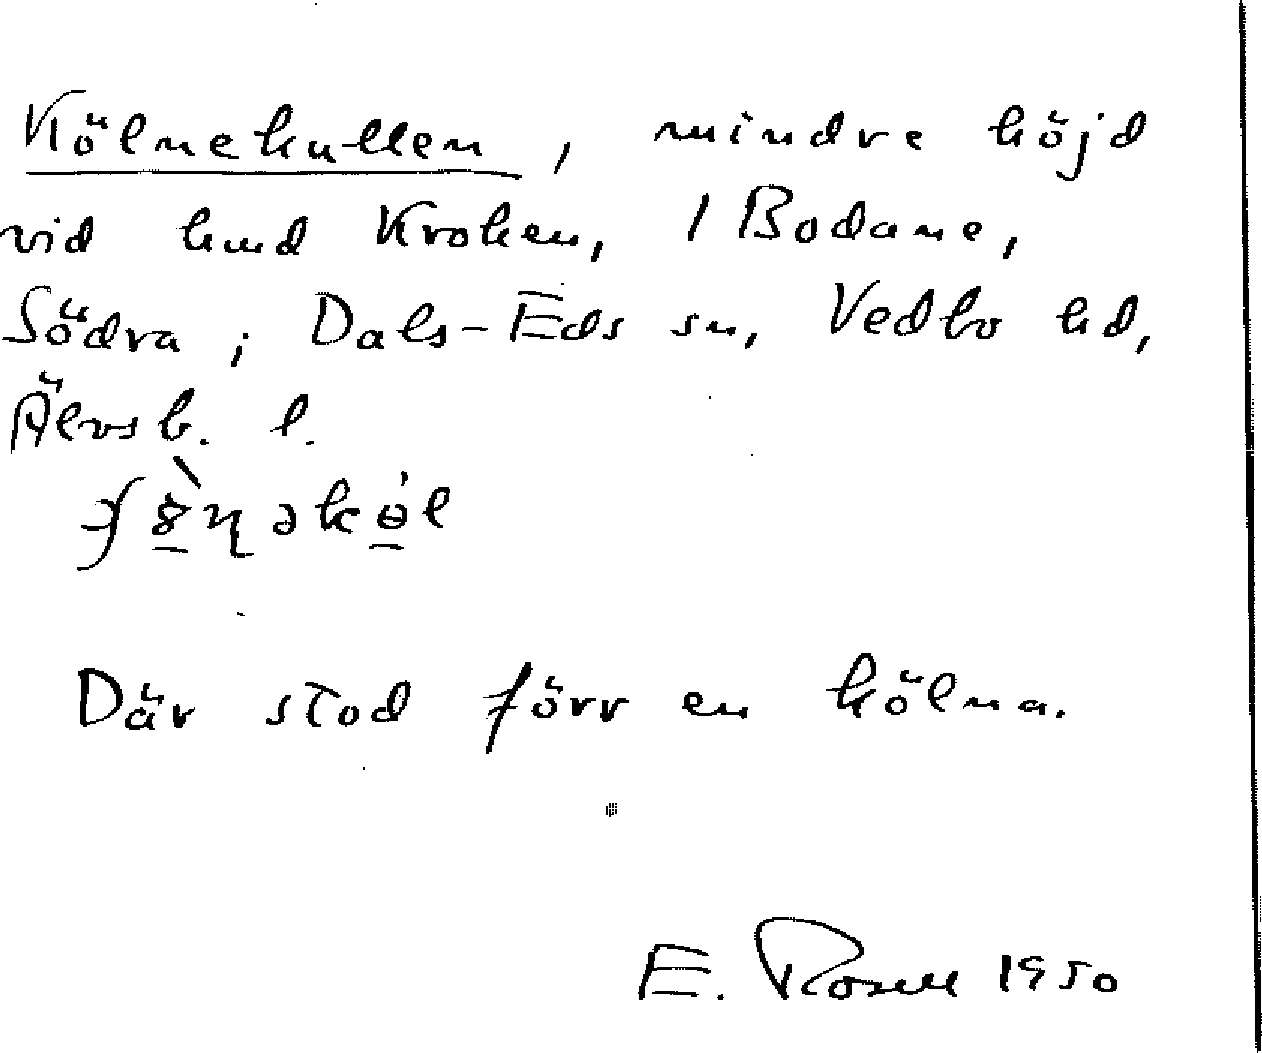 Kölnekullen, mindre höjd
vid hmd Kroken, 1 Bodane,
Södra; Dals-Eds sn, Vedbo hd,
Älvsb. l.
Där stod förr en kölna.
E. Rosell 1950